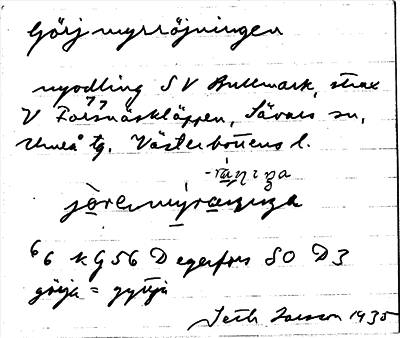 Görjmyrröjningen
nyodling SV Bullmark, strax
V Forsnäskläppen, Sävars sn,
Umeå tg. Västerbottens l.
6 K G56 Degerfors SO D3
görja = gyttja
Seth Larsson 1935